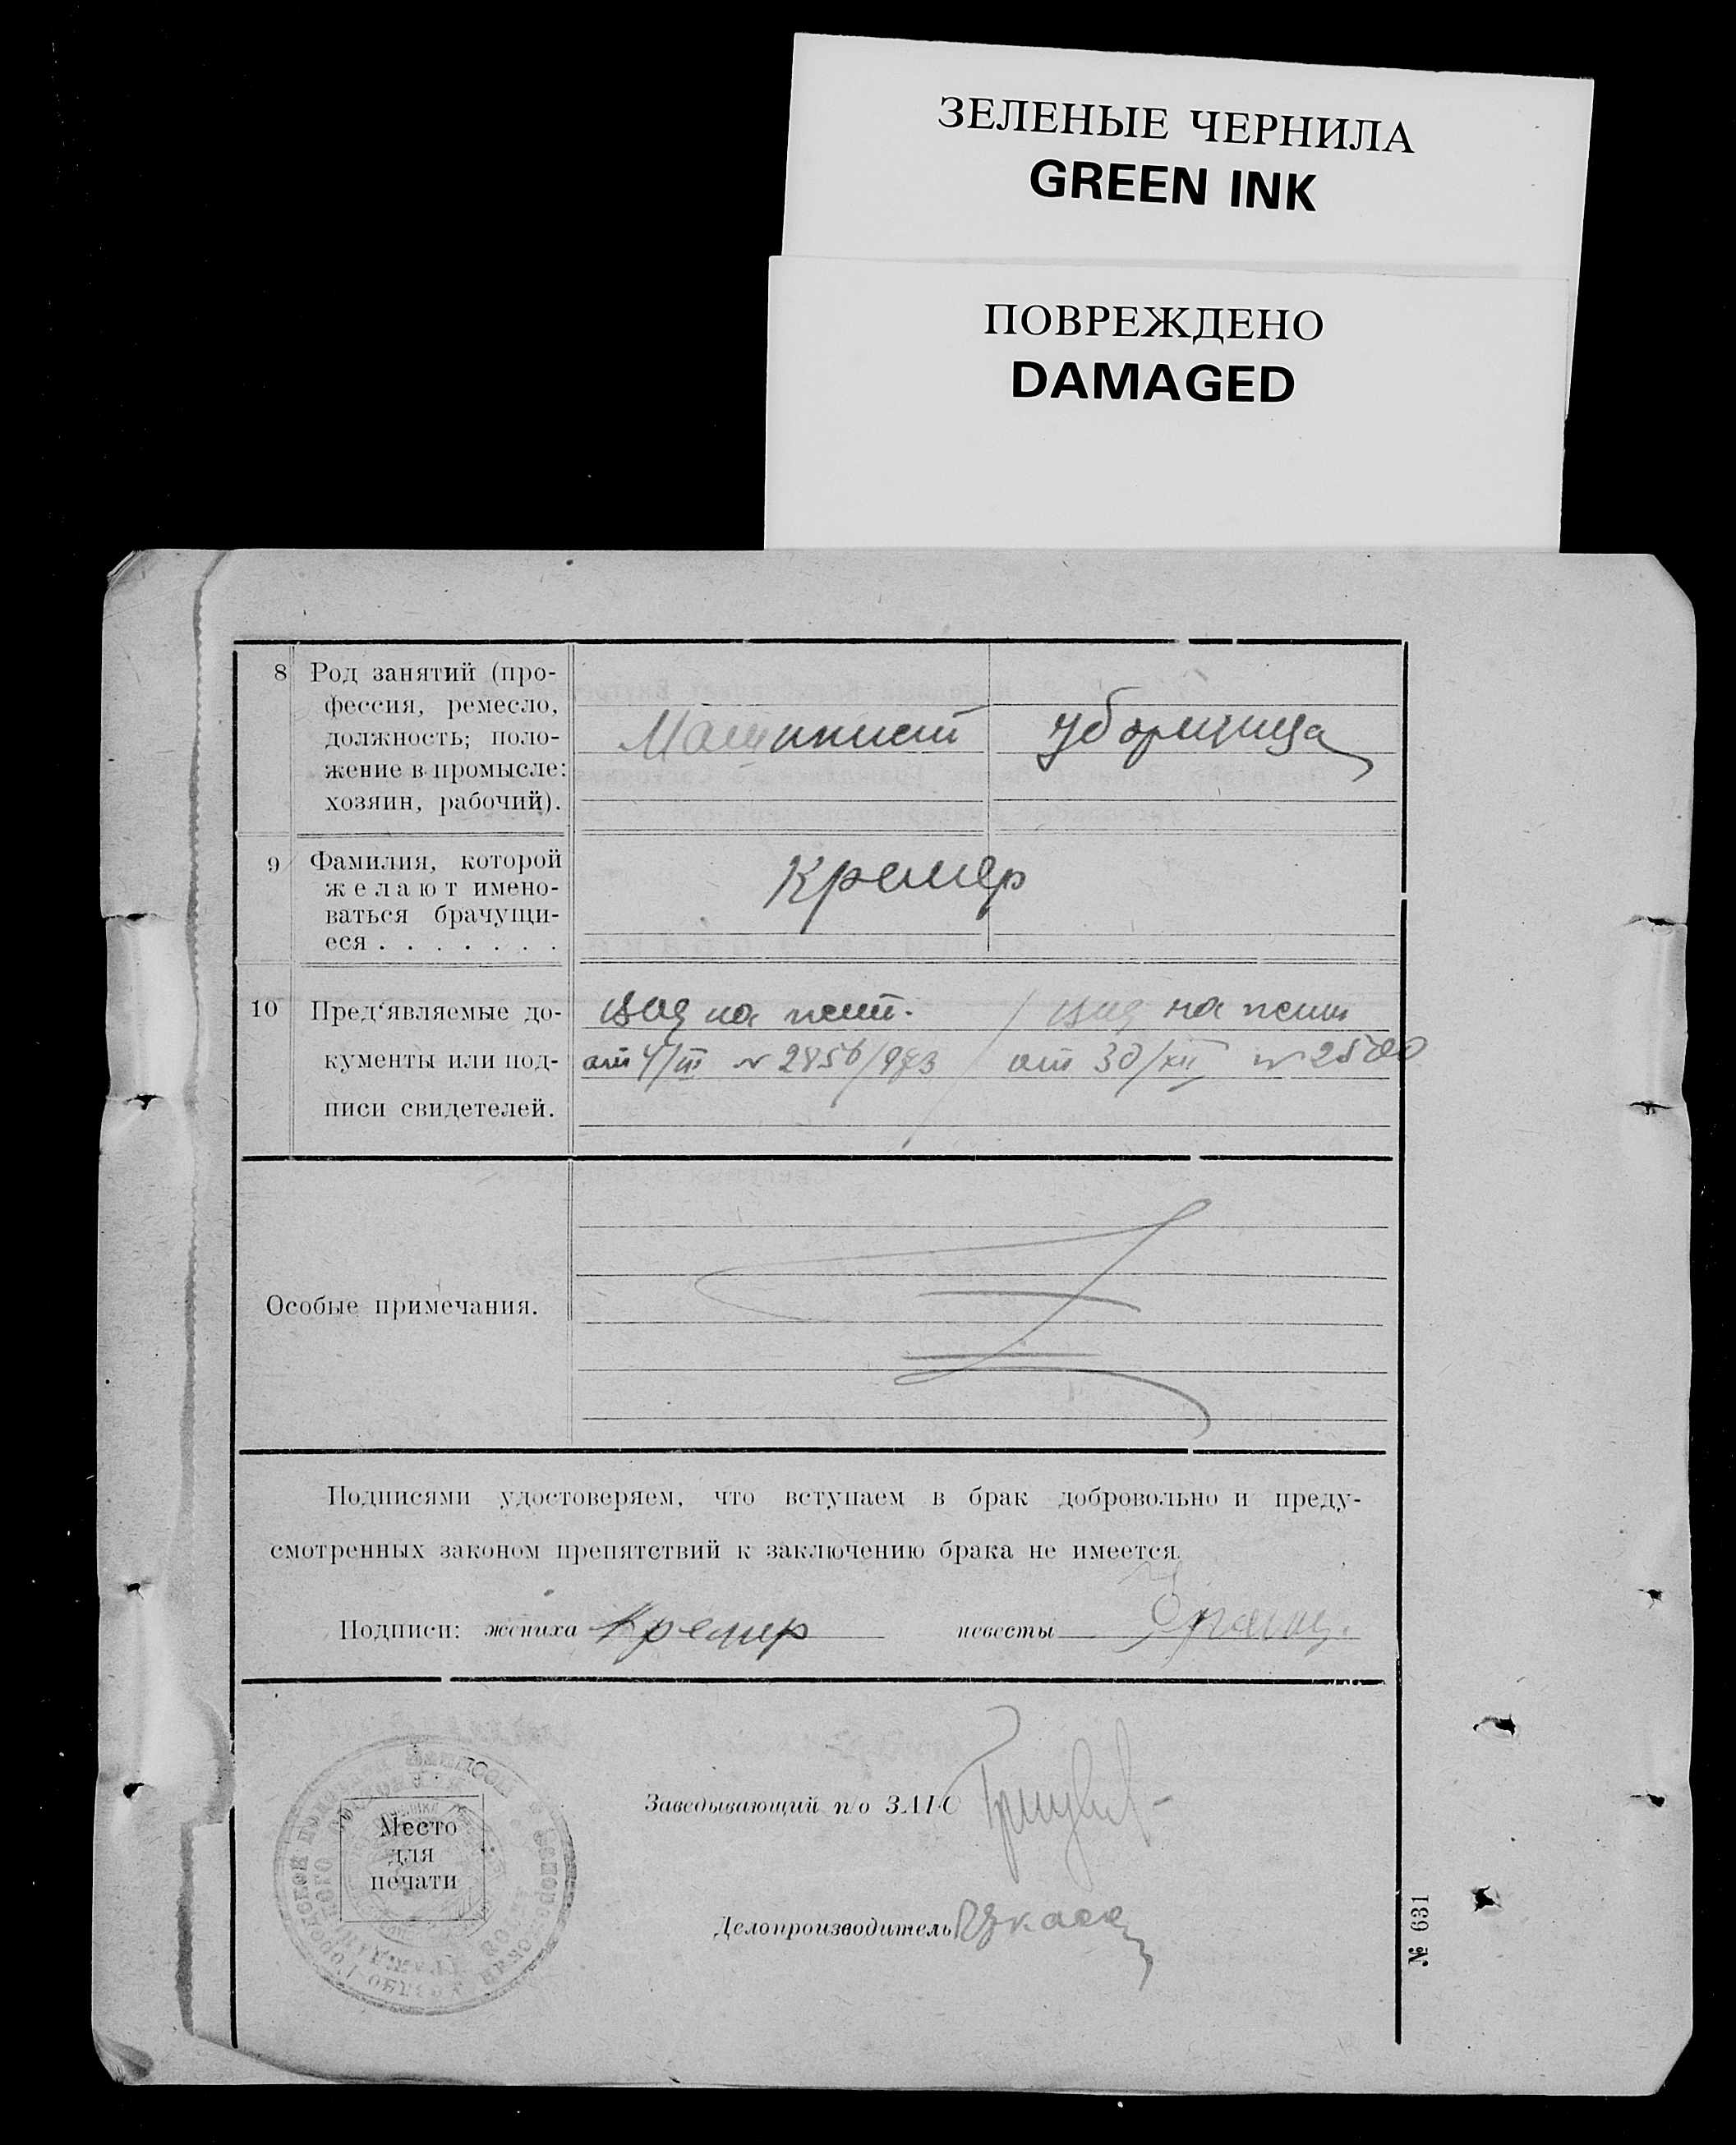 ЗЕЛЕНЫЕ ЧЕРНИЛА
GREEN INK
ПОВРЕЖДЕНО
DAMAGED
8 Род занятий (про-
фессия, ремесло,
должность; поло-
жение в промысле:
хозяин, рабочий).
Машинист
уборщица
9 Фамилия, которой
желают имено-
ваться брачущи-
еся . . . . . . .
Кремер
10 Пред'являемые до-
кументы или под-
писи свидетелей.
вид на жит.
от 4/III № 2856/973
вид на жит
от 30/XII № 2500
Особые примечания.
Подписями удостоверяем, что вступаем в брак добровольно и преду-
смотренных законом препятствий к заключению брака не имеется
Подписи: жениха Кремер невесты
Заведывающий п/о ЗАГС
Делопроизводитель
Место
для
печати
№ 631